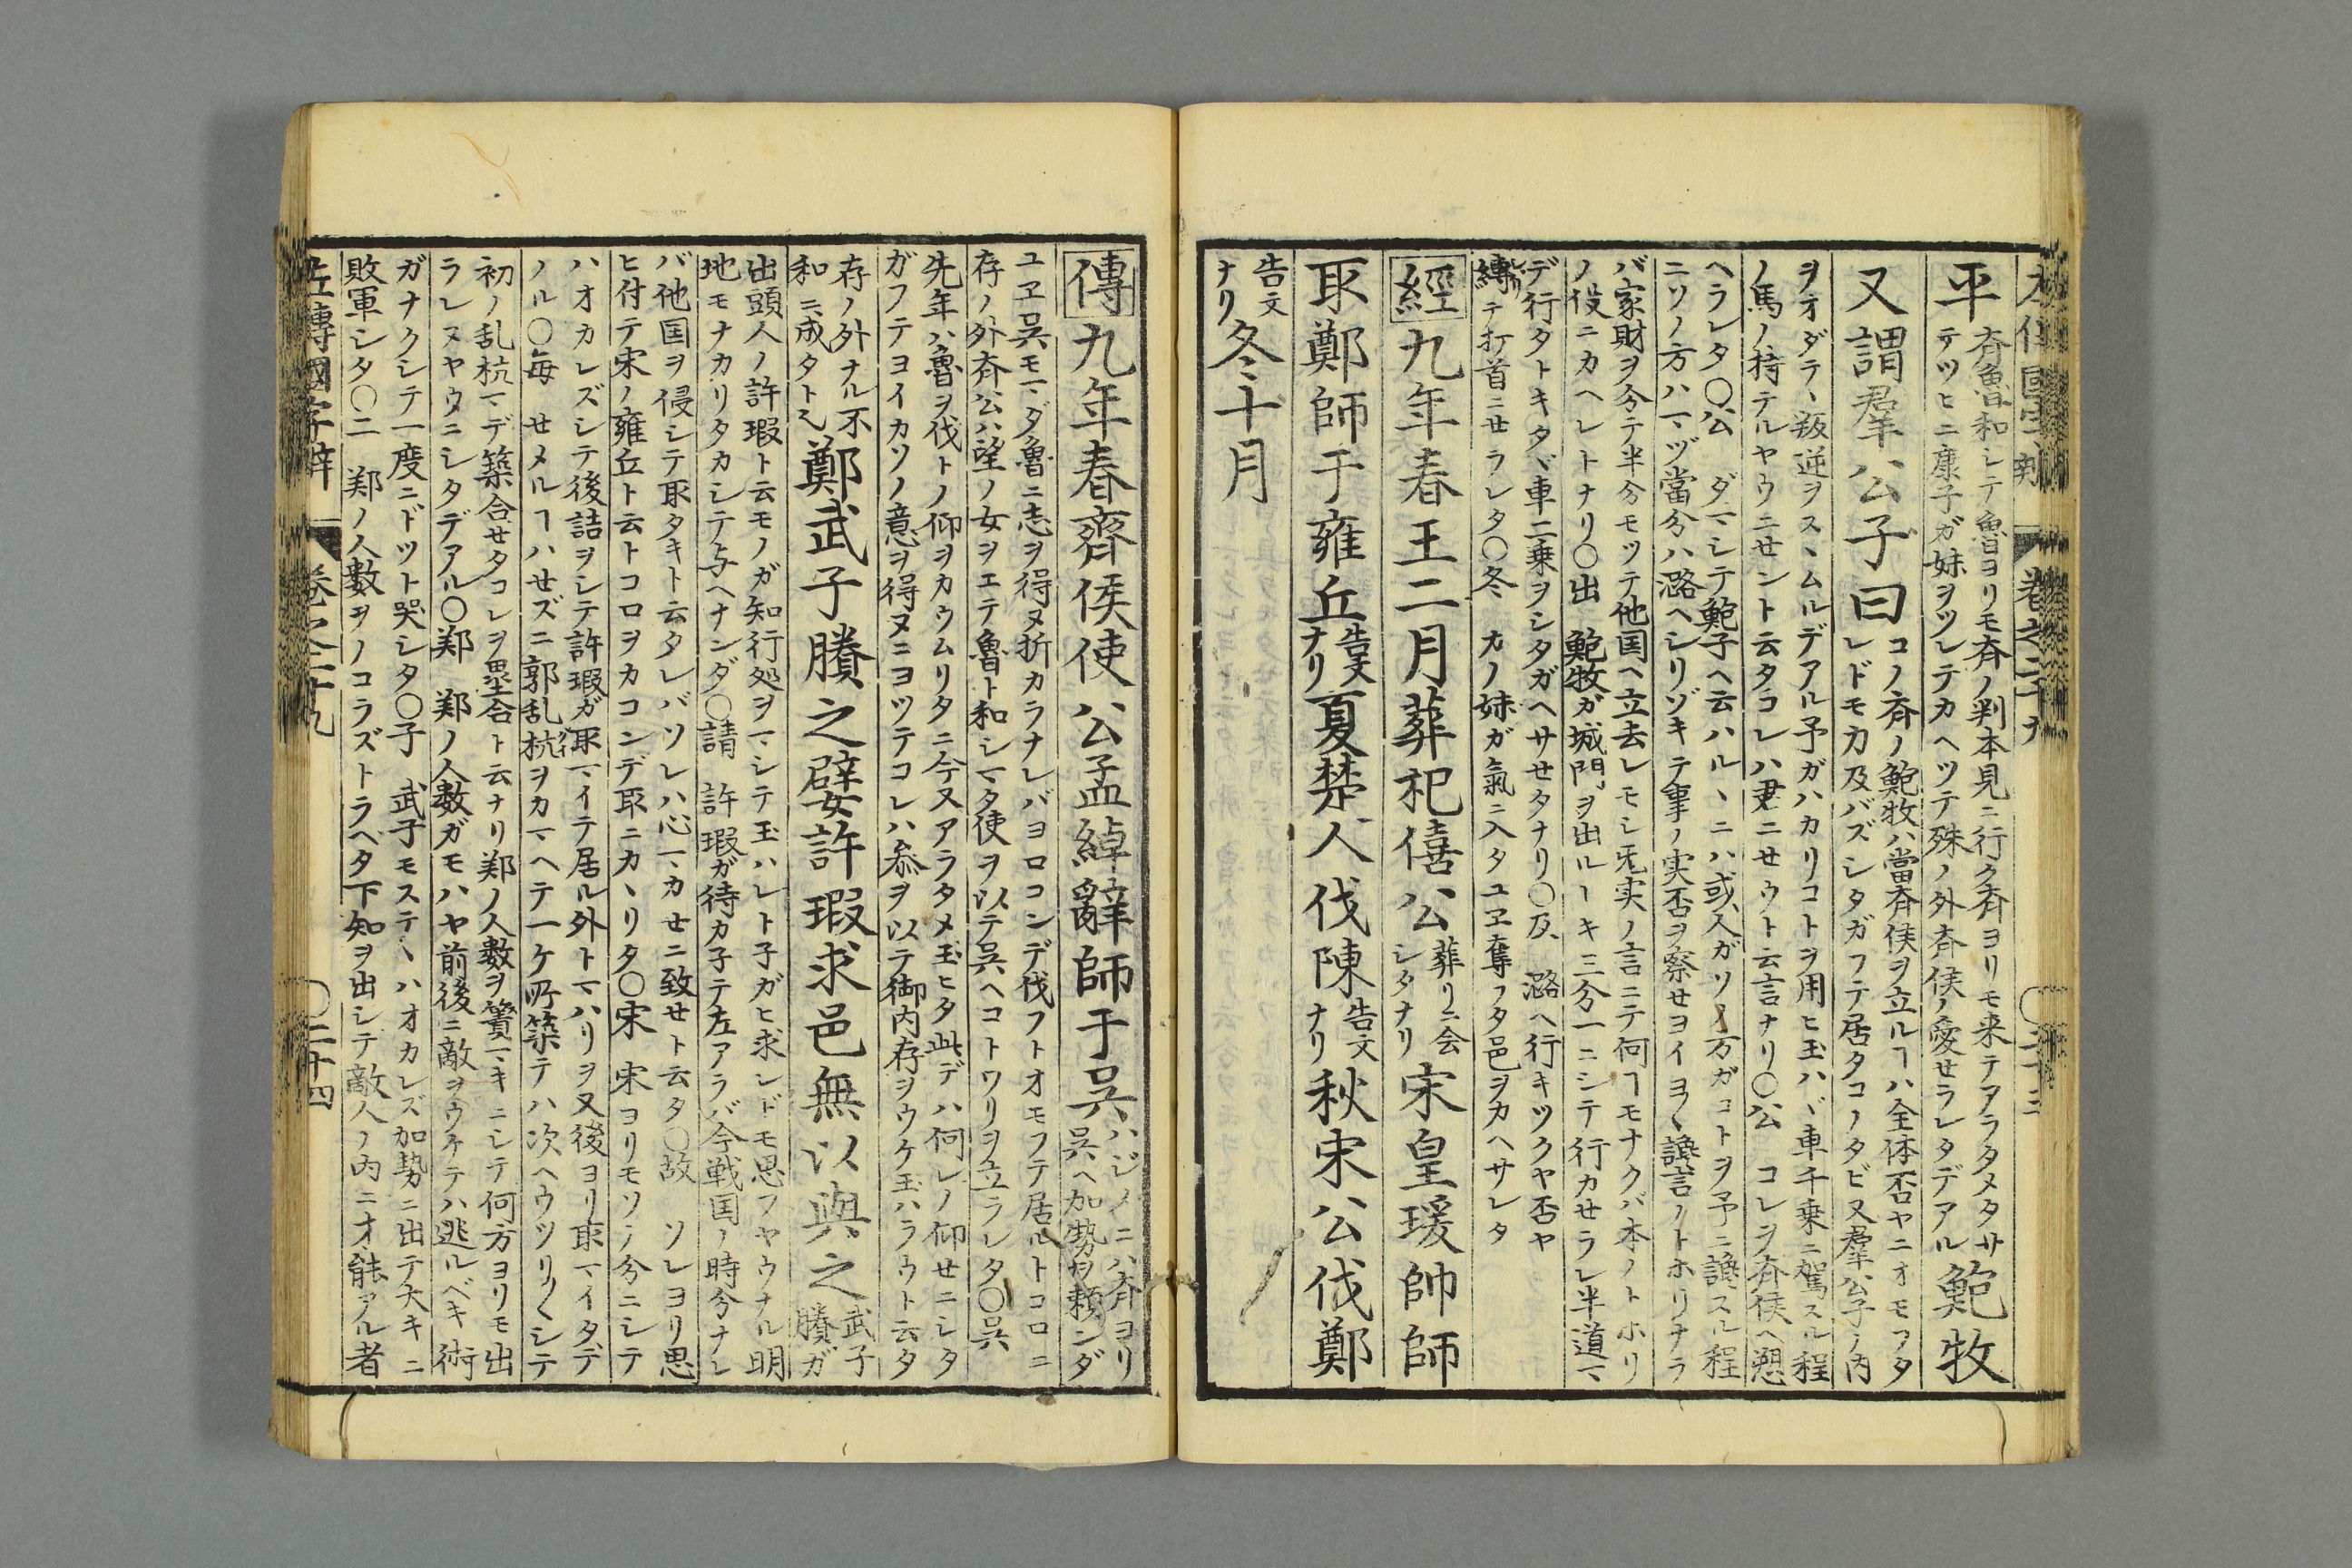 平
斉魯和シテ魯ヨリモ斉ノ判本見ニ行ク斉ヨリモ来テアラタメタサ
テツヒニ康子ガ妹ヲツレテカヘツテ殊ノ外斉侯ノ愛せラレタデアル
鮑牧
又謂羣公子曰
コノ斉ノ鮑牧ハ當斉侯ヲ立ルヿハ全体否ヤニオモフタ
レドモ力及バズシタガフテ居タコノタビ又羣公子ノ内
ヲオダテヽ叛逆ヲスヽムルデアル予ガハカリコトヲ用ヒ玉ハヾ車千乗ニ駕スル程
ノ馬ノ持テルヤウニせント云タコレハ君ニせウト云言ナリ〇公 コレヲ斉侯ヘ愬
ヘラレタ〇公 ダマシテ鮑子ヘ云ハルヽニハ或人ガソノ方ガコトヲ予ニ讒スル程
ニソノ方ハマヅ當分ハ潞ヘシリゾキテ事ノ実否ヲ察せヨイヨ〱讒言ノトホリナラ
バ家財ヲ分テ半分モツテ他国ヘ立去レモシ旡実ノ言ニテ何ヿモナクバ本ノトホリ
ノ役ニカヘレトナリ〇出 鮑牧ガ城門ヲ出ルトキ三分一ニシテ行カせラレ半道マ
デ行タトキタヾ車二乗ヲシタガヘサせタナリ〇及 潞ヘ行キツクヤ否ヤ
縛テ打首ニせラレタ〇冬 カノ妹ガ氣ニ入タユヱ奪フタ邑ヲカヘサレタ
經九年春王二月葬祀僖公
葬リニ会
シタナリ
宋皇瑗帥師
取鄭師于雍丘
告文
ナリ
夏楚人伐陳
告文
ナリ
秋宋公伐鄭
告文
ナリ
冬十月
傳九年春齊侯使公孟綽辭師于呉
ハジメニハ斉ヨリ
呉ヘ加勢ヲ頼ンダ
ユヱ呉モマダ魯ニ志ヲ得ヌ折カラナレバヨロコンデ伐フトオモフテ居ルトコロニ
存ノ外斉公ハ望ノ女ヲエテ魯ト和シマタ使ヲ以テ呉ヘコトワリヲ立ラレタ〇呉
先年ハ魯ヲ伐トノ仰ヲカウムリタニ今又アラタメ玉ヒタ此デハ何レノ仰せニシタ
ガフテヨイカソノ意ヲ得ヌニヨツテコレハ参ヲ以テ御内存ヲウケ玉ハラウト云タ
存ノ外ナル不
和ニ成タト也
鄭武子賸之嬖許瑕求邑無以與之
武子
賸ガ
出頭人ノ許瑕ト云モノガ知行処ヲマシテ玉ハレト子ガヒ求レドモ思フヤウナル明
地モナカリタカシテ与ヘナンダ〇請 許瑕ガ待カ子テ左アラバ今戦国ノ時分ナレ
バ他国ヲ侵シテ取タキト云タレバソレハ心マカせニ致せト云タ〇故 ソレヨリ思
ヒ付テ宋ノ雍丘ト云トコロヲカコンデ取ニカヽリタ〇宋 宋ヨリモソノ分ニシテ
ハオカレズシテ後詰ヲシテ許瑕ガ取マイテ居ル外トマハリヲ又後ヨリ取マイタデ
ノル〇毎 せメルヿハせズニ郭乱杭ヲカマヘテ一ケ所築テハ次ヘウツリ〱シテ
初ノ乱杭マデ築合せタコレヲ壘合ト云ナリ鄭ノ人数ヲ簀マキニシテ何方ヨリモ出
ラレヌヤウニシタデアル〇鄭 鄭ノ人数ガモハヤ前後ニ敵ヲウケテハ逃ルベキ術
ガナクシテ一度ニドツト哭シタ〇子 武子モステヽハオカレズ加勢ニ出テ大キニ
敗軍シタ〇二 鄭ノ人數ヲノコラズトラヘタ下知ヲ出シテ敵人ノ内ニオ能アル者
左傳國字辯 巻之二十九 〇二十四